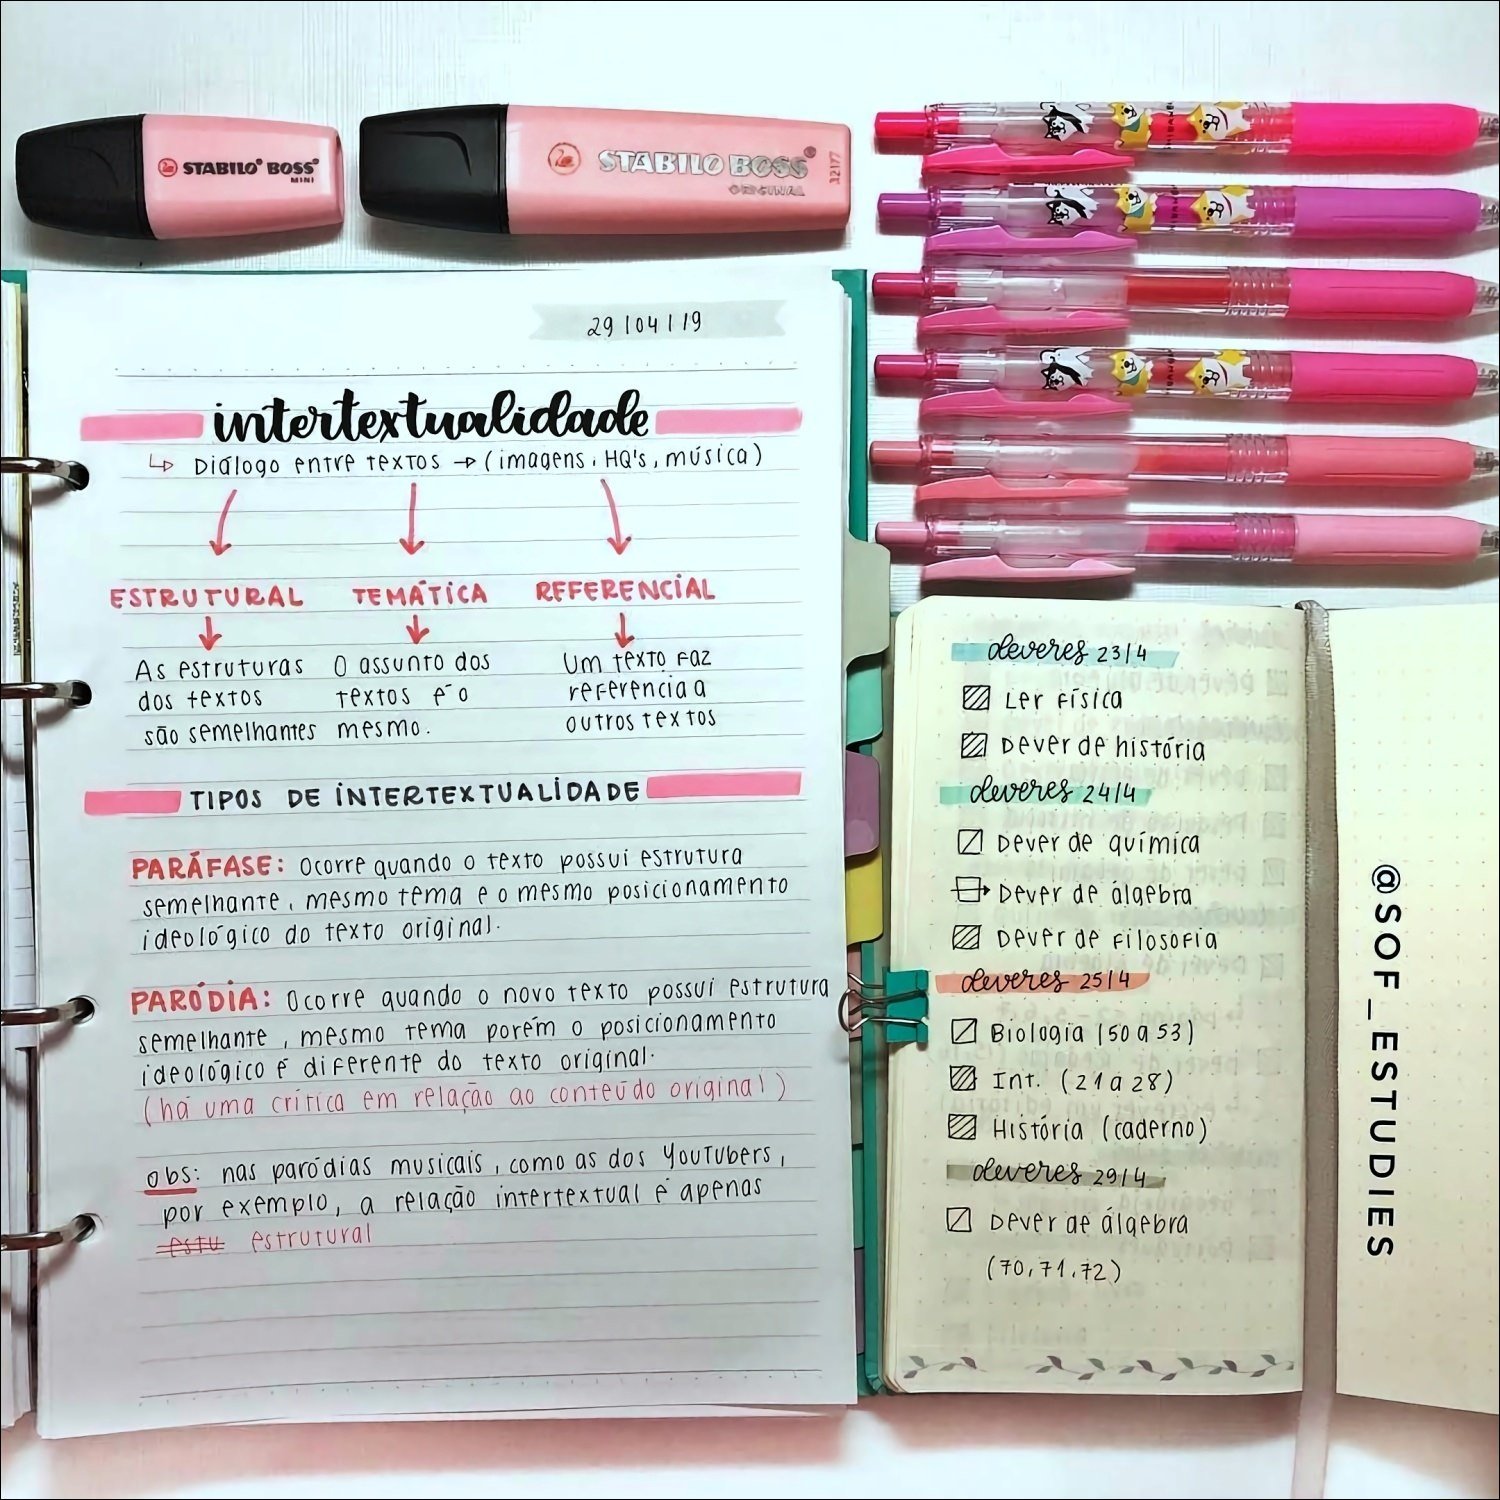 STABILO BOSS
MINI
STABILO BOSS
ORIGINAL
32177
29/04/19
intertextualidade
↳ Diálogo entre textos → (imagens, HQ's, música)
ESTRUTURAL TEMÁTICA REFERENCIAL
As estruturas
dos textos
são semelhantes
O assunto dos
textos é o
mesmo.
Um texto faz
referencia a
outros textos
TIPOS DE INTERTEXTUALIDADE
PARÁFASE: Ocorre quando o texto possui estrutura
semelhante, mesmo tema e o mesmo posicionamento
ideológico do texto original.
PARÓDIA: Ocorre quando o novo texto possui estrutura
semelhante, mesmo tema porém o posicionamento
ideológico é diferente do texto original.
(há uma crítica em relação ao conteúdo original)
obs: nas paródias musicais, como as dos YouTubers,
por exemplo, a relação intertextual é apenas
estu estrutural
deveres 23/4
Ler física
Dever de história
deveres 24/4
Dever de química
Dever de álgebra
Dever de Filosofia
deveres 25/4
Biologia (50 a 53)
Int. (21 a 28)
História (caderno)
deveres 29/4
Dever de álgebra
(70, 71, 72)
@SOF_ESTUDIES